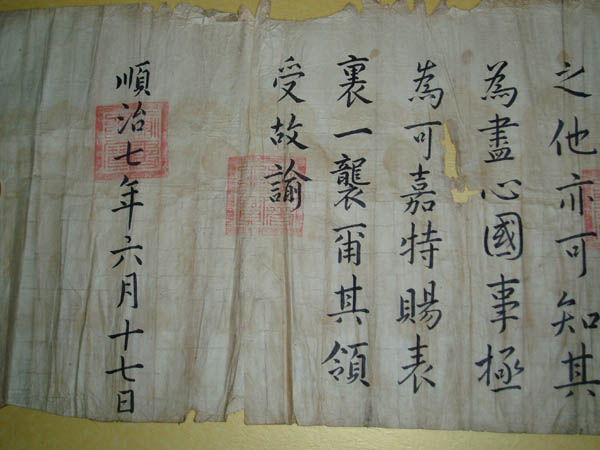 之他亦可知其
為盡心國事極
為可嘉特賜表
裏一襲爾其領
受故諭
順治七年六月十七日